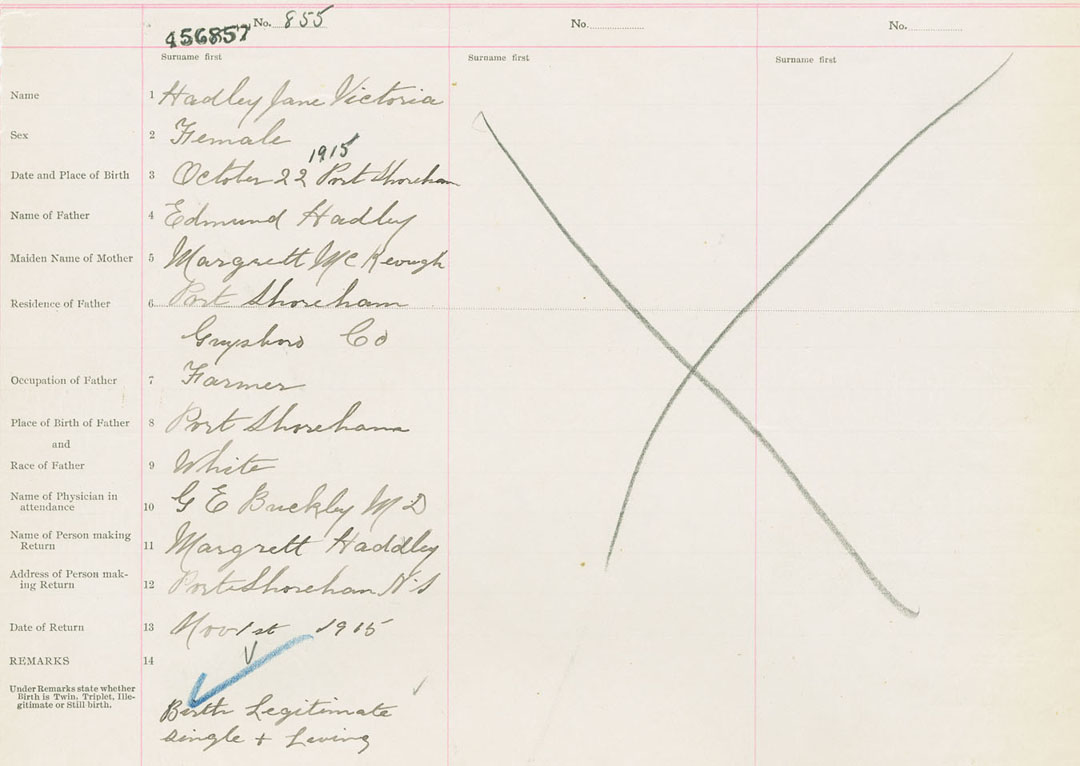 No. 855
No.
No.
456857
Surname first
Surname first
Surname first
Name 1 Hadley Jane Victoria
Sex 2 Female
1915
Date and Place of Birth 3 October 22 Port Shoreham
Name of Father 4 Edmund Hadley
Maiden Name of Mother 5 Margrett McKeough
Residence of Father 6 Port Shoreham
Guysboro Co
Occupation of Father 7 Farmer
Place of Birth of Father 8 Port Shoreham
and
Race of Father 9 White
Name of Physician in
attendance 10 G E Buckley M D
Name of Person making
Return 11 Margrett Haddley
Address of Person mak-
ing Return 12 Port Shoreham N S
Date of Return 13 Nov 1st 1915
REMARKS 14
Under Remarks state whether
Birth is Twin, Triplet, Ille-
gitimate or Still birth.
Birth Legitimate
Single + Living